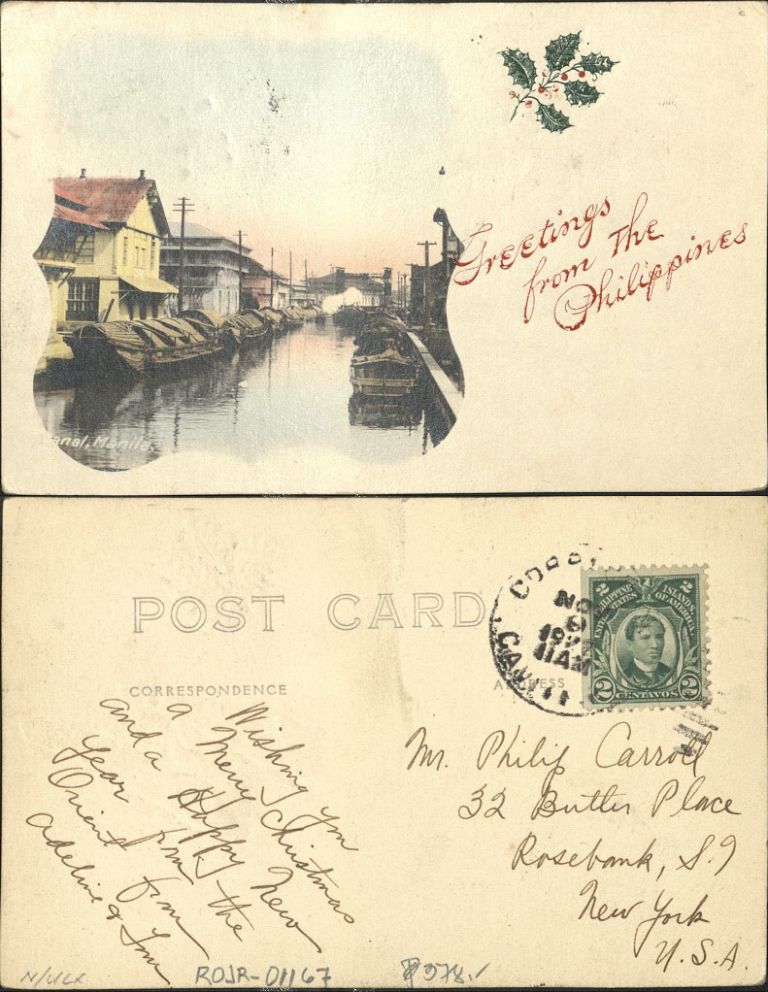 Greetings
from The
Philippines
anal, Manila.
POST CARD
CORRESPONDENCE
ADDRESS
NO
9
11AM
CAVIT
PHILIPPINE ISLANDS
UNITED STATES OF AMERICA
2 2
2 CENTAVOS 2
Wishing you
a Merry Christmas
and a Happy New
year from the
Orient from
Adeline & Tom
Mr. Philip Carroll
32 Butler Place
Rosebank, S.I
New York
U.S.A.
ROJR-01167